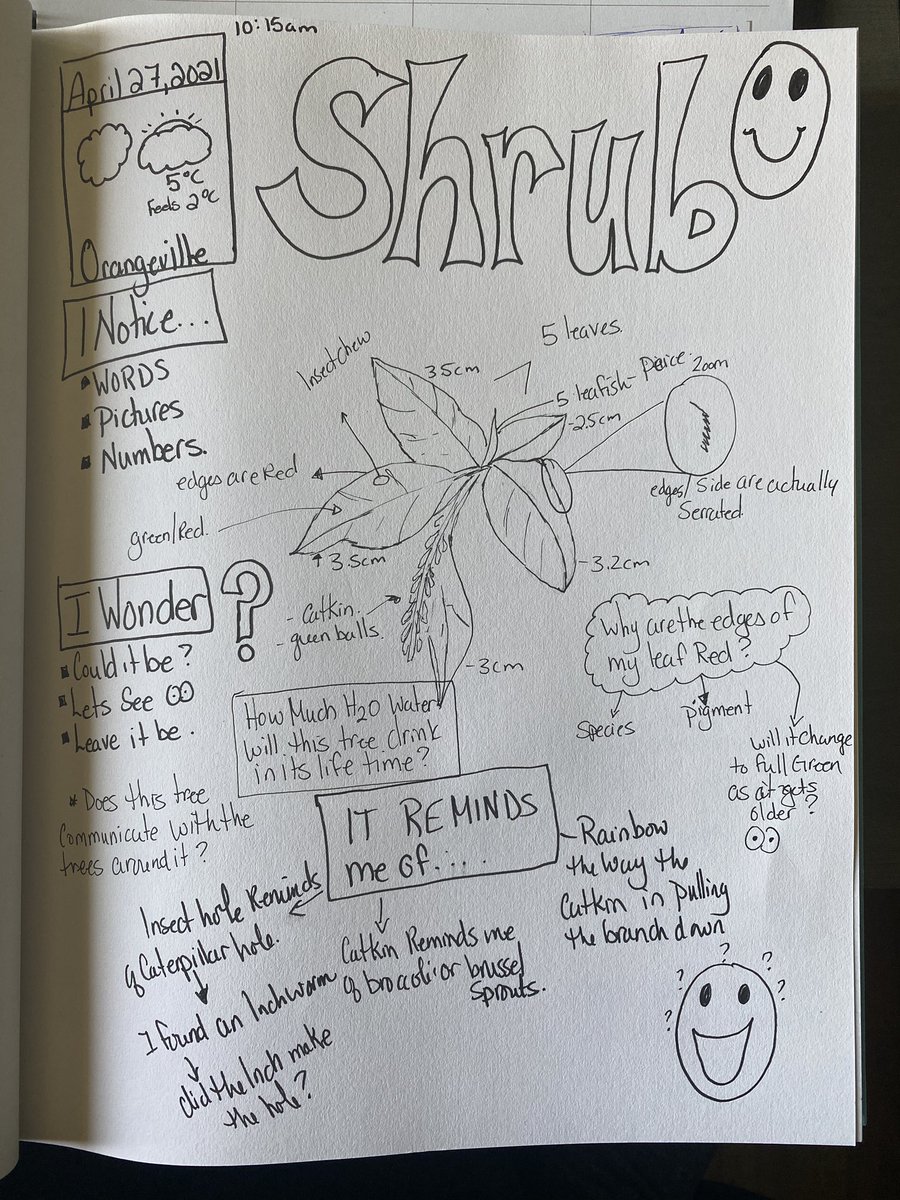 10:15am
April 27, 2021
5°C
Feels 2°C
Orangeville
Shrub
I Notice...
WORDS
Pictures
Numbers.
Insect chew
3.5cm
5 leaves.
5 leafish-
Zoom
-2.5cm
edges are Red
edges/Side are actually
Serrated
green/Red.
3.5cm
-3.2cm
- Catkin.
- green balls.
-3cm
I Wonder ?
Could it be?
Lets See
Leave it be.
* Does this tree
Communicate with the
trees around it?
How Much H2O Water
will this tree drink
in its life time?
Why are the edges of
my leaf Red?
Species
Pigment
will it change
to full Green
as it gets
older?
IT REMINDS
me of.....
-Rainbow
the way the
Catkin in Pulling
the branch down
Insect hole Reminds
of Caterpillar hole.
I found an Inchworm
did the Inch make
the hole?
Catkin Reminds me
of broccoli or brussel
Sprouts.
? ? ? ? ?